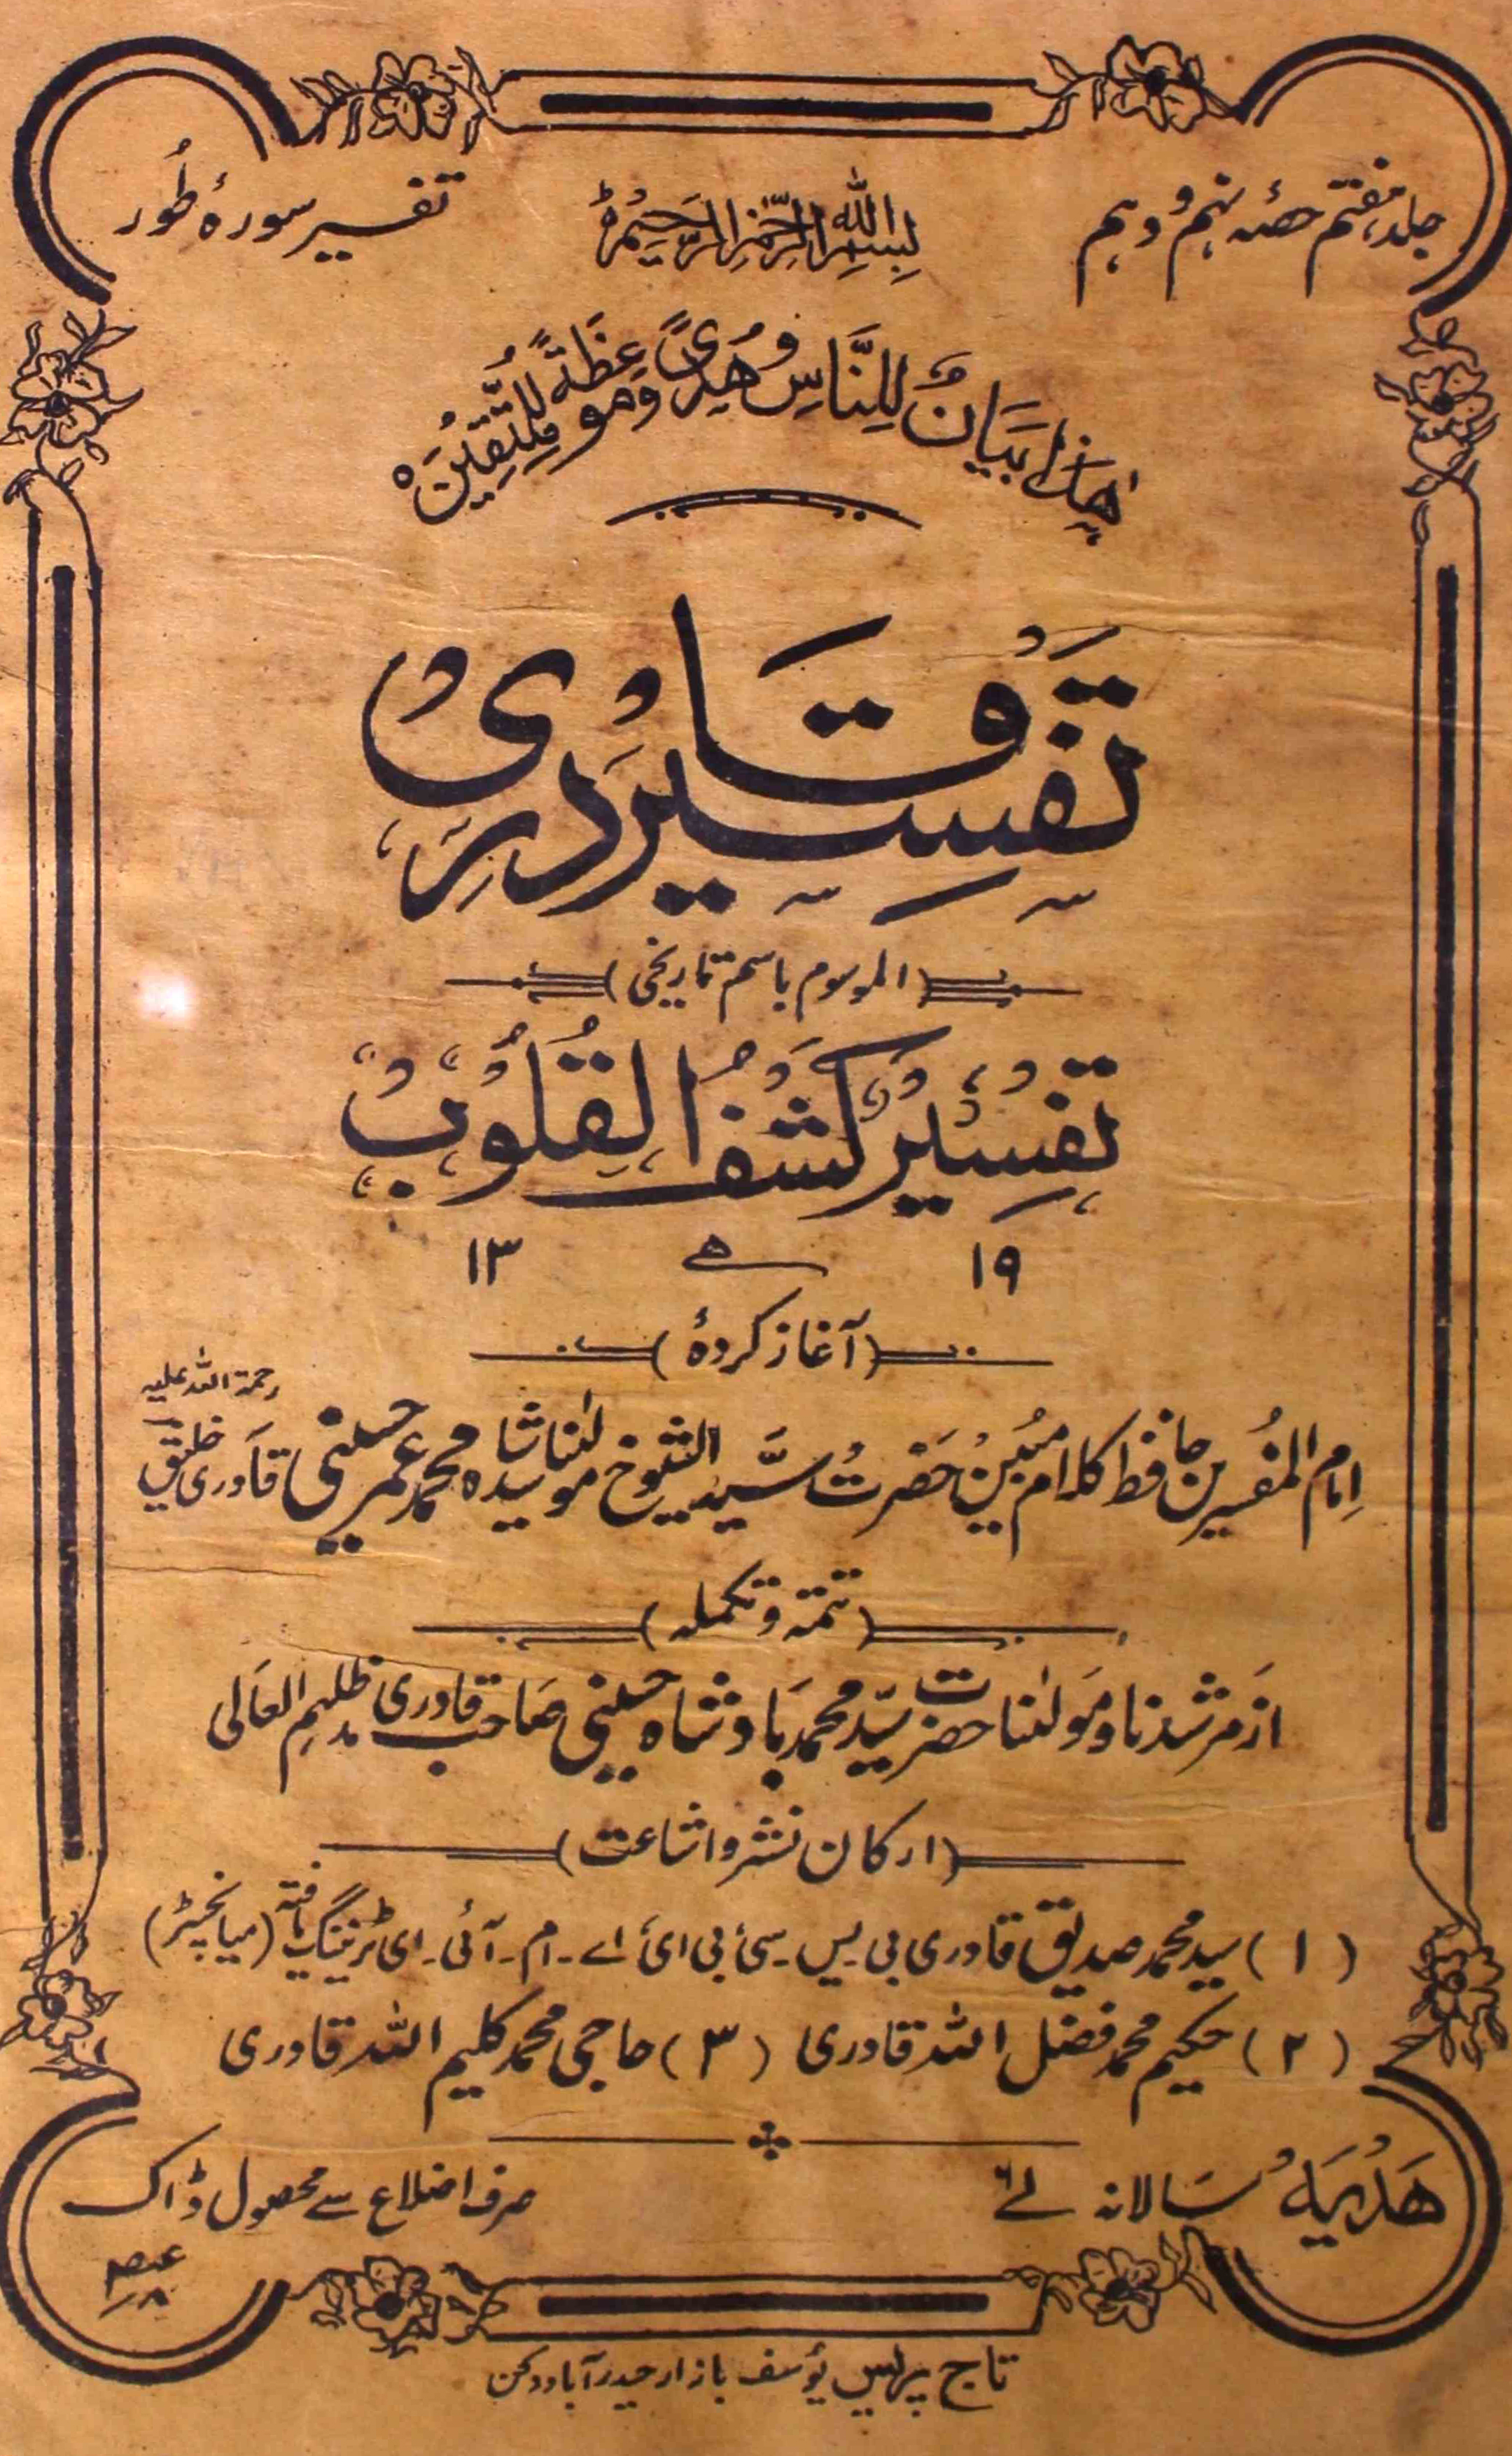 جلد ہفتم حصّہ نہم و دہم
بِسْمِ اللّٰهِ الرَّحْمٰنِ الرَّحِيْمِ
تفسیر سورۂ طُور
هٰذَا بَيَانٌ لِّلنَّاسِ وَهُدًى وَّمَوْعِظَةٌ لِّلْمُتَّقِيْنَ ه
تفسیر قادری
(الموسوم باسم تاریخی)
تفسیر کشف القلوب
۱۹ ھ ۱۳
(آغاز کردہٗ)
اِمام المفسرین حافظ کلام مبین حضرت سید الشیوخ مولٰنا سید شاہ محمد عمر حسینی قادری خلیق رحمۃ اللہ علیہ
(تتمّہ و تکملہ)
از مرشدنا و مولٰنا حضرت سیّد محمد بادشاہ حسینی صاحب قادری مدظلہم العالی
(ارکان نشر و اشاعت)
(۱) سید محمد صدیق قادری بی۔یس۔سی بی ای اے۔ام۔آئی۔ای ٹریننگ یافتہ (میانچسٹر)
(۲) حکیم محمد فضل اللہ قادری (۳) حاجی محمد کلیم اللہ قادری
ھَدْیَہُ سَالانہ
صرف اضلاع سے محصول ڈاک
تاج پریس یوسف بازار حیدرآباد دکن